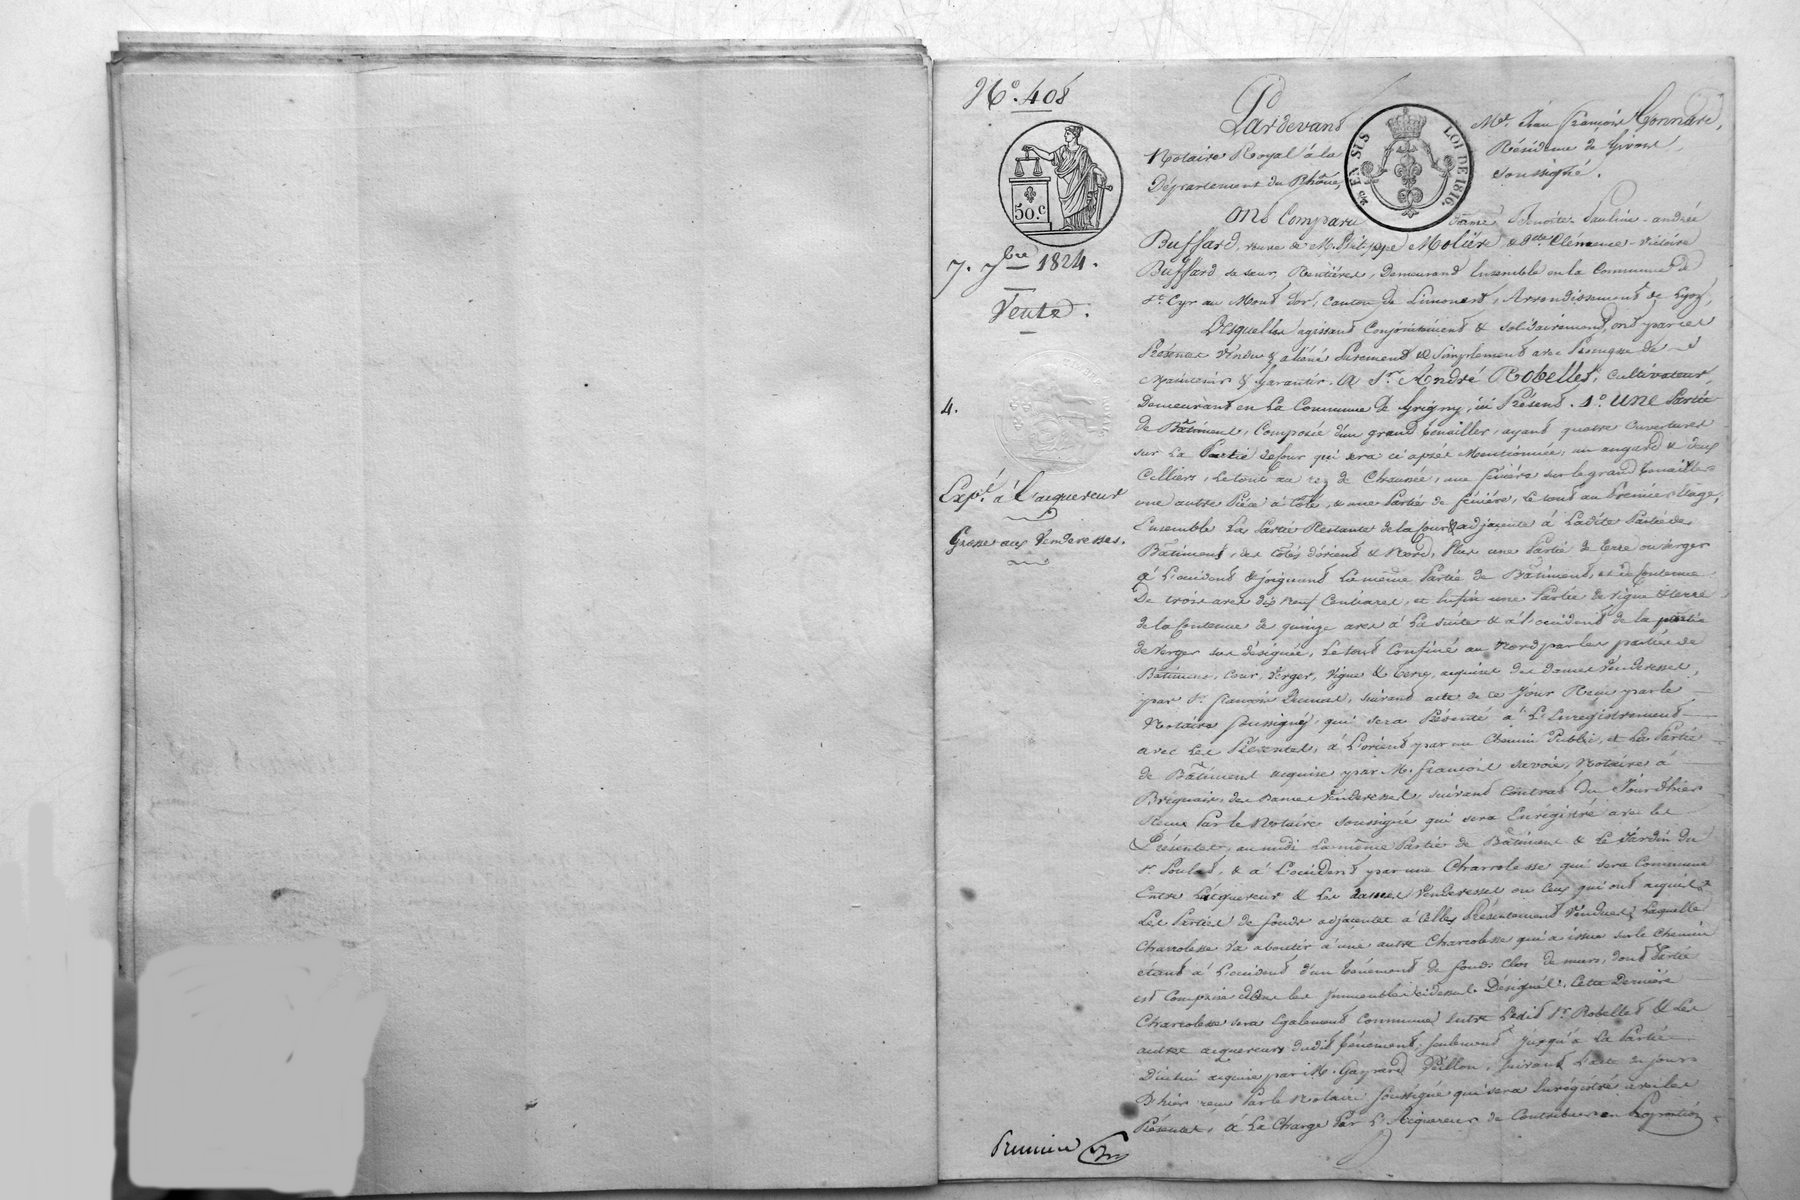 N.° 408
50.c
7. 7bre 1824.
Vente.
4.
Exp.t à l'acquereur
Grosse aux Venderesses.
Pardevant Me. Jean François Connard,
EN SUS LOI DE 1816.
Notaire Royal à la Résidence de Givors,
Département du Rhône, soussigné.
Ont Comparu dame Benoite Pauline andrée
Buffard, veuve de M. Philippe Molière, & dlle Clémence-victoire
Buffard sa sœur, Rentières, Demeurant Ensemble en la Commune de
St. Cyr au Mont d'or, Canton de Limonest, Arrondissement de Lyon,
Lesquelles agissant Conjointement & solidairement, ont par ces
Présentes Vendu & aliéné Purement & Simplement avec Promesse de
Maintenir & Garantir. A Sr. André Robellet, Cultivateur,
Demeurant en La Commune de Grigny, ici Présent. 1.° Une Partie
de Bâtiment, Composée d'un grand tenailler, ayant quatre Ouvertures
sur La Partie de Cour qui sera ci après Mentionnée, un angard & deux
Celliers, Le tout au rez de Chaussée, une fénière sur le grand tenailler
une autre Pièce à Côté, & une Partie de fénière, Le tout au Premier Etage,
Ensemble La Partie Restante de la Cour & adjacente à Ladite Partie de
Bâtiment, des Côtés d'orient & Nord, Plus une Partie de terre ou verger
à L'occident & joignant La même Partie de Bâtiment, et de Contenue
De trois ares dix neuf Centiares, et Enfin une Partie de vigne & terre
de la Contenue de quinze ares à La suite & à l'occident de la partie
de Verger sus désignée, Le tout Confiné au Nord par les parties de
Bâtiment, Cour, Verger, Vigne & terre, acquises des dames Venderesses,
par Sr. françois, suivant acte de ce Jour Reçu par le
Notaire soussigné, qui sera Présenté à L'Enregistrement
avec Les Présentes, à L'orient par un Chemin Public, et La Partie
de Bâtiment acquise par M. françois savoie, Notaire à
Brignais, des Dames Venderesses, suivant Contrat du Jour d'hier
Reçu Par le Notaire soussigné qui sera Enrégistré avec les
Présentes, au midi La même Partie de Bâtiment & Le Jardin du
Sr. Poulat, & à L'occident par une Charrolesse qui sera Commune
Entre L'acquereur & Les dames Venderesses ou Ceux qui ont acquis
Les Parties de fonds adjacentes à Celles Présentement Vendues, Laquelle
Charrolesse va aboutir à une autre Charrolesse qui a issue sur le Chemin
étant à L'occident d'un tènement de fonds Clos de murs, dont Partie
est Comprise dans les Immeubles cidessus Désignés. Cette Dernière
Charrolesse sera Egalement Commune Entre Ledit Sr. Robellet & Les
autres acquereurs dudit Tènement, seulement Jusqu'à La Partie
D'icelui acquise par M. Gayrard Peillon, suivant L'acte du Jour
D'hier reçu Par le Notaire soussigné qui sera Enrégistré avec les
Présentes, à La Charge Par L'Acquereur de Contribuer en Proportion
Premiere